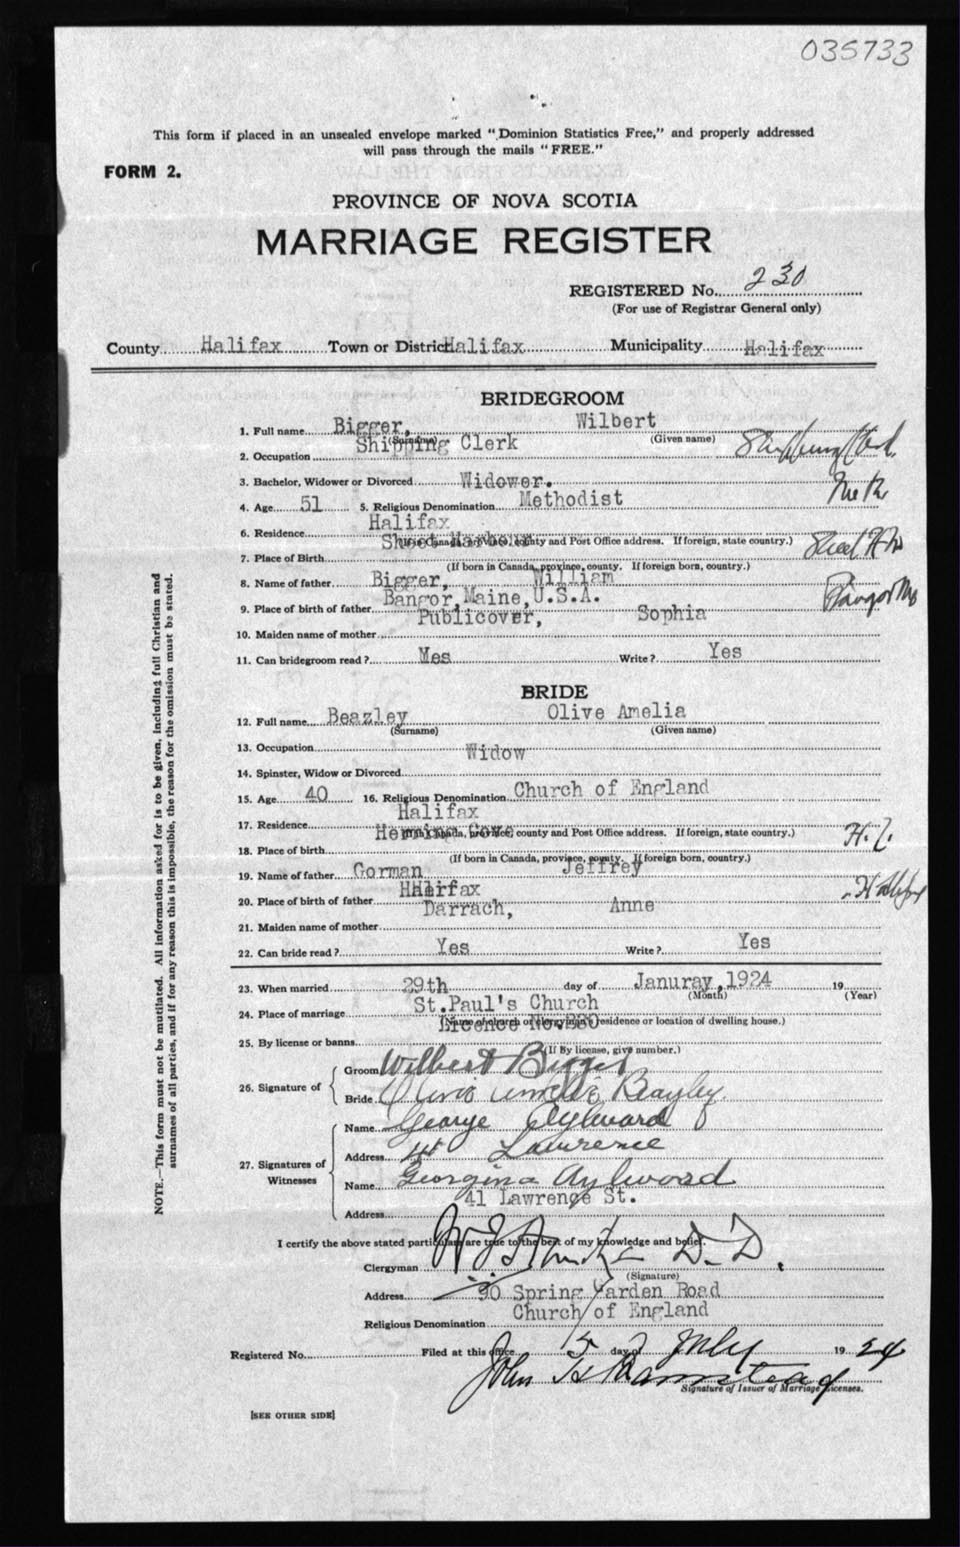 035733
This form if placed in an unsealed envelope marked "Dominion Statistics Free," and properly addressed
will pass through the mails "FREE."
FORM 2.
PROVINCE OF NOVA SCOTIA
MARRIAGE REGISTER
REGISTERED No. 230
(For use of Registrar General only)
County Halifax Town or District Halifax Municipality Halifax
BRIDEGROOM
1. Full name Bigger, Wilbert
(Surname) (Given name)
2. Occupation Shipping Clerk Shipping Clerk
3. Bachelor, Widower or Divorced Widower.
4. Age 51 5. Religious Denomination Methodist Meth
6. Residence Halifax
county and Post Office address. If foreign, state country.)
7. Place of Birth Sheet
(If born in Canada, province, county. If foreign born, country.)
8. Name of father Bigger, William
9. Place of birth of father Bangor, Maine, U.S.A. Bangor Me
10. Maiden name of mother Publicover, Sophia
11. Can bridegroom read? Yes Write? Yes
BRIDE
12. Full name Beazley Olive Amelia
(Surname) (Given name)
13. Occupation
14. Spinster, Widow or Divorced Widow
15. Age 40 16. Religious Denomination Church of England
17. Residence Halifax
county and Post Office address. If foreign, state country.)
18. Place of birth Cove
(If born in Canada, province, county. If foreign born, country.)
19. Name of father Gorman Jeffrey
20. Place of birth of father Halifax Halifax
21. Maiden name of mother Darrach, Anne
22. Can bride read? Yes Write? Yes
23. When married 29th day of Januray, 1924 19
(Month) (Year)
24. Place of marriage St.Paul's Church
(Name of church or clergyman's residence or location of dwelling house.)
25. By license or banns Licence No.
(If By license, give number.)
26. Signature of Groom Wilbert Bigger
Bride Olive Amelia Beazley
27. Signatures of Witnesses
Name George Aylward
Address 41 Lawrence
Name Georgina Aylward
Address 41 Lawrence St.
I certify the above stated particulars are true to the best of my knowledge and belief.
Clergyman D.D.
(Signature)
Address 90 Spring Garden Road
Religious Denomination Church of England
Registered No. Filed at this office 5 day of July 19 24
John H Barnstead
Signature of Issuer of Marriage Licenses.
[SEE OTHER SIDE]
NOTE.—This form must not be mutilated. All information asked for is to be given, including full Christian and
surnames of all parties, and if for any reason this is impossible, the reason for the omission must be stated.